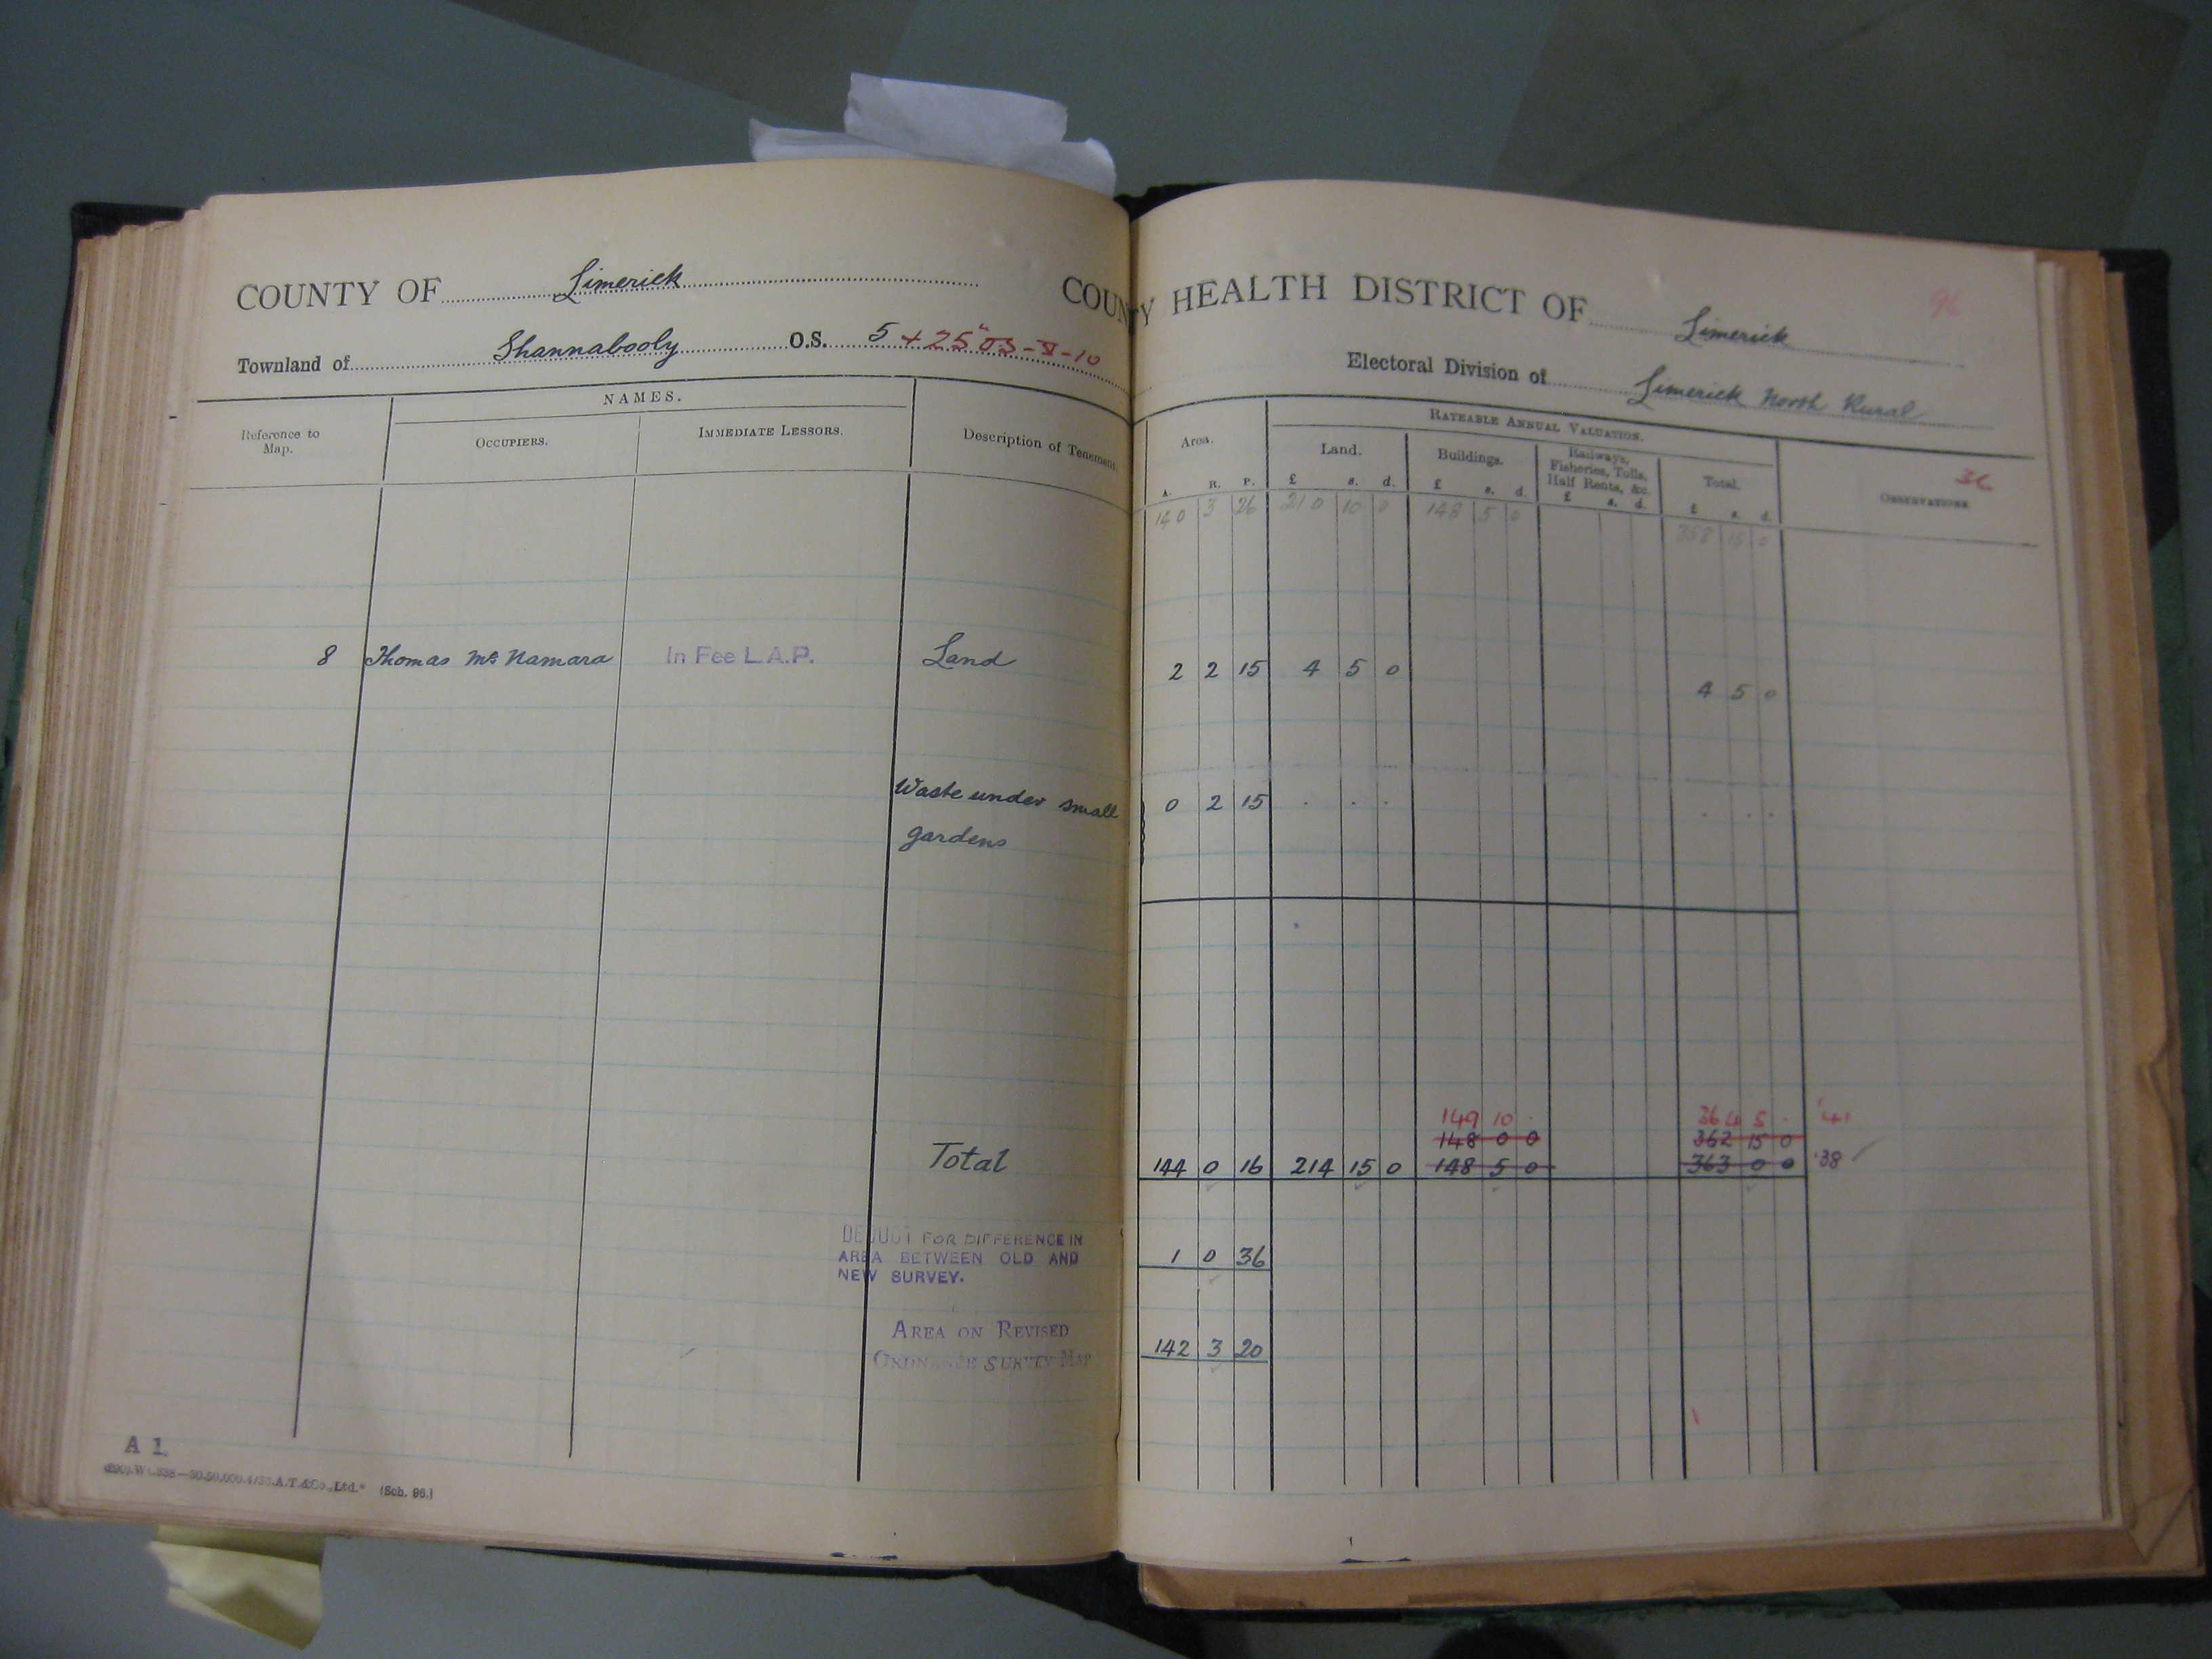 COUNTY OF Limerick
COUNTY HEALTH DISTRICT OF Limerick
96
Townland of Shannabooly O.S. 5 + 25" OS-V-10
Electoral Division of Limerick North Rural
Reference to Map.
NAMES.
OCCUPIERS.
IMMEDIATE LESSORS.
Description of Tenement
Area.
A. R. P.
RATEABLE ANNUAL VALUATION.
Land.
£ s. d.
Buildings.
£ s. d.
Railways, Fisheries, Tolls, Half Rents, &c.
£ s. d.
Total.
£ s. d.
OBSERVATIONS
140 3 26 210 10 0 148 5 0 358 15 0
8 Thomas Mc Namara In Fee L.A.P. Land 2 2 15 4 5 0 4 5 0
Waste under small 0 2 15 . . . . . .
gardens
149 10 . 364 5 . '41
148 0 0 362 15 0
Total 144 0 16 214 15 0 148 5 0 363 0 0 '38
DEDUCT FOR DIFFERENCE IN
AREA BETWEEN OLD AND 1 0 36
NEW SURVEY.
AREA ON REVISED 142 3 20
ORDNANCE SURVEY MAP
A 1.
(Sch. 96.)